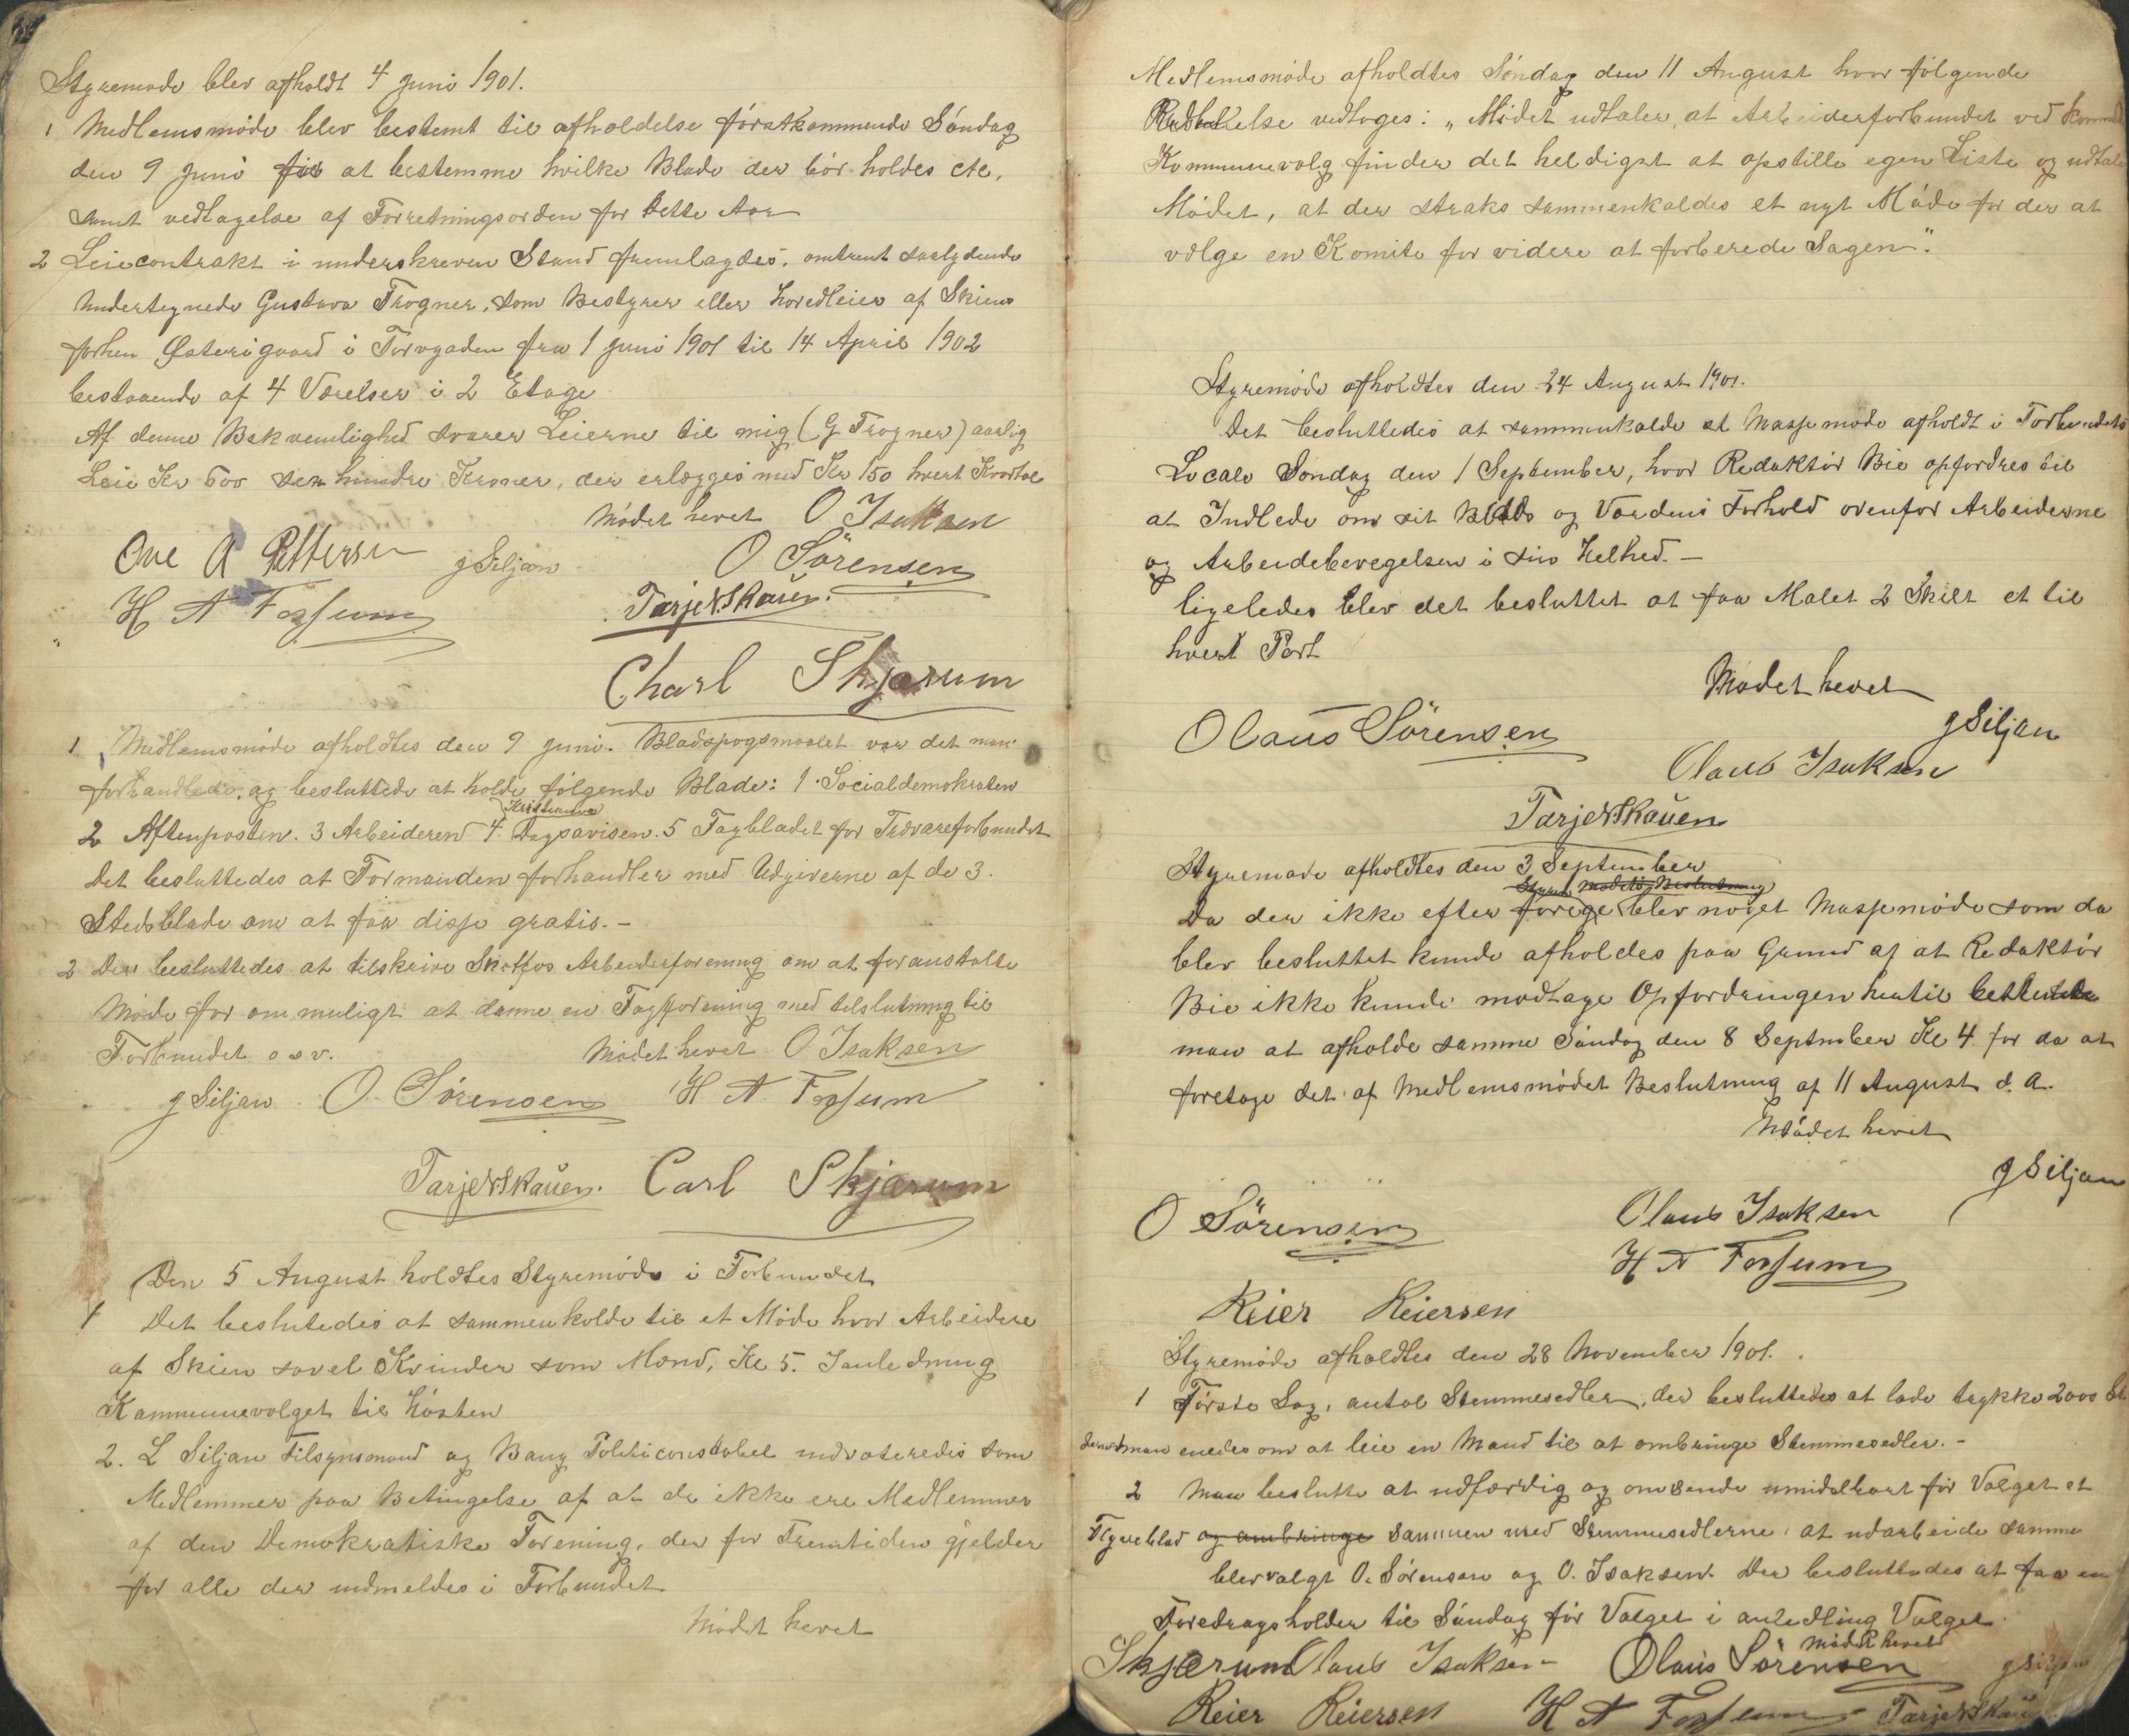 Styremøde blev afholdt 4 Juni 1901.
1 Medlemsmøde blev bestemt til afholdelse førstkommende Søndag
den 9 Juni for at bestemme hvilke Blade der bør holdes etc.
samt vedtagelse af Forretningsorden for dette Aar
2 Leiecontrakt i underskreven Stand fremlagdes. omtrent saalydende
Undertegnede Gustava Trogner, som Bestyrer eller hovedleier af Skiens
forhen Østerigaard i Torvgaden fra 1 Juni 1901 til 14 April 1902
bestaaende af 4 Værelser i 2 Etage
Af denne Bekvemlighed svarer Leierne til mig (G Trogner) aarlig
Leie Kr 600 sex hundre Kroner, der erlægges med Kr 150 hvert Kvartal
Mødet hevet O Isaksen
Ove A Pettersen g Siljan O Sörensen
H A Fossum Tarje N Skauen.
Charl Skjærum
1 Medlemsmøde afholdtes den 9 Juni. Bladspøgsmaalet var det man
forhandlede, og besluttede at holde følgende Blade: 1. Socialdemokraten
Kristiania
2 Aftenposten. 3 Arbeideren 4. Dagsavisen. 5 Fagbladet for Trævareforbundet
Det besluttedes at Formanden forhandler med Udgiverne af de 3.
Stedsblade om at faa disse gratis. -
2 Der besluttedes at tilskrive Skotfos Arbeiderforening om at foranstalte
Møde for om muligt at danne en Fagforening med tilslutning til
Forbundet o s v. Mødet hevet O Isaksen
g Siljan O. Sörensen H A Fossum
Tarje N Skauen. Carl Skjærum
Den 5 August holdtes Styremøde i Forbundet
1 Det beslutedes at sammenkolde til et Møde hvor Arbeidere
af Skien savel Kvinder som Mænd, Kl 5. I anledning
Kommunevalget til Høsten
2. L Siljan Tilsynsmand og Bang Politiconstabel indvoteredes som
Medlemmer paa Betingelse af at de ikke ere Medlemmer
af den Demokratiske Forening, der for Fremtiden gjelder
for alle der indmeldes i Forbundet
Mødet hevet
Medlemsmøde afholdtes Søndag den 11 August hvor følgende
vedtoges: „Mødet udtaler, at Arbeiderforbundet ved
Kommunevalg finder det heldigst at opstille egen Liste og udtaler
Mødet, at der straks sammenkaldes et nyt Møde for der at
vælge en Komite for videre at forberede Sagen".
Styremøde afholdtes den 24 August 1901.
Det besluttedes at sammenkalde et Massemøde afholdt i Forbundets
Locale Søndag den 1 September, hvor Redaktør Bie opfordres til
at Indlede om sit Blads og Vardens Forhold ovenfor Arbeiderne
og Arbeidebevegelsen i sin Helhed. -
ligeledes blev det besluttet at faa Malet 2 Skilt et til
hvert Port
Mødet hevet
Olaus Sörensen g Siljan
Olaus Isaksen
Tarje N Skauen
Styremøde afholdtes den 3 September
Styre Mødets Beslutning
Da der ikke efter forige blev noget Massemøde som da
blev besluttet kunde afholdes paa Grund af at Redaktør
Bie ikke kunde modtage Opfordringen hertil besluttede
man at afholde samme Søndag den 8 September Kl 4 for da at
foretage det af Medlemsmødet Beslutning af 11 August d. A.
Mødet hevet
g Siljan
O Sörensen Olaus Isaksen
H A Fossum
Reier Reiersen
Styremøde afholdtes den 28 November 1901.
1 Første Sag, antal Stemmesedler, der besluttedes at lade trykke 2000
man enedes om at leie en Mand til at ombringe Stemmesedler. -
2 Man beslutte at udfærdig og omsende umidelbart før Valget et
Flyveblad og ombringe sammen med Stemmesedlerne, at udarbeide samme
blev valgt O. Sörensen og O. Isaksen. Der besluttedes at faa en
Foredragsholder til Søndag før Valget i anledling Valget.
Mødet hevet
Skjærum Olaus Isaksen Olaus Sörensen g Siljan
Reier Reiersen H A Fossum Tarje N Skauen